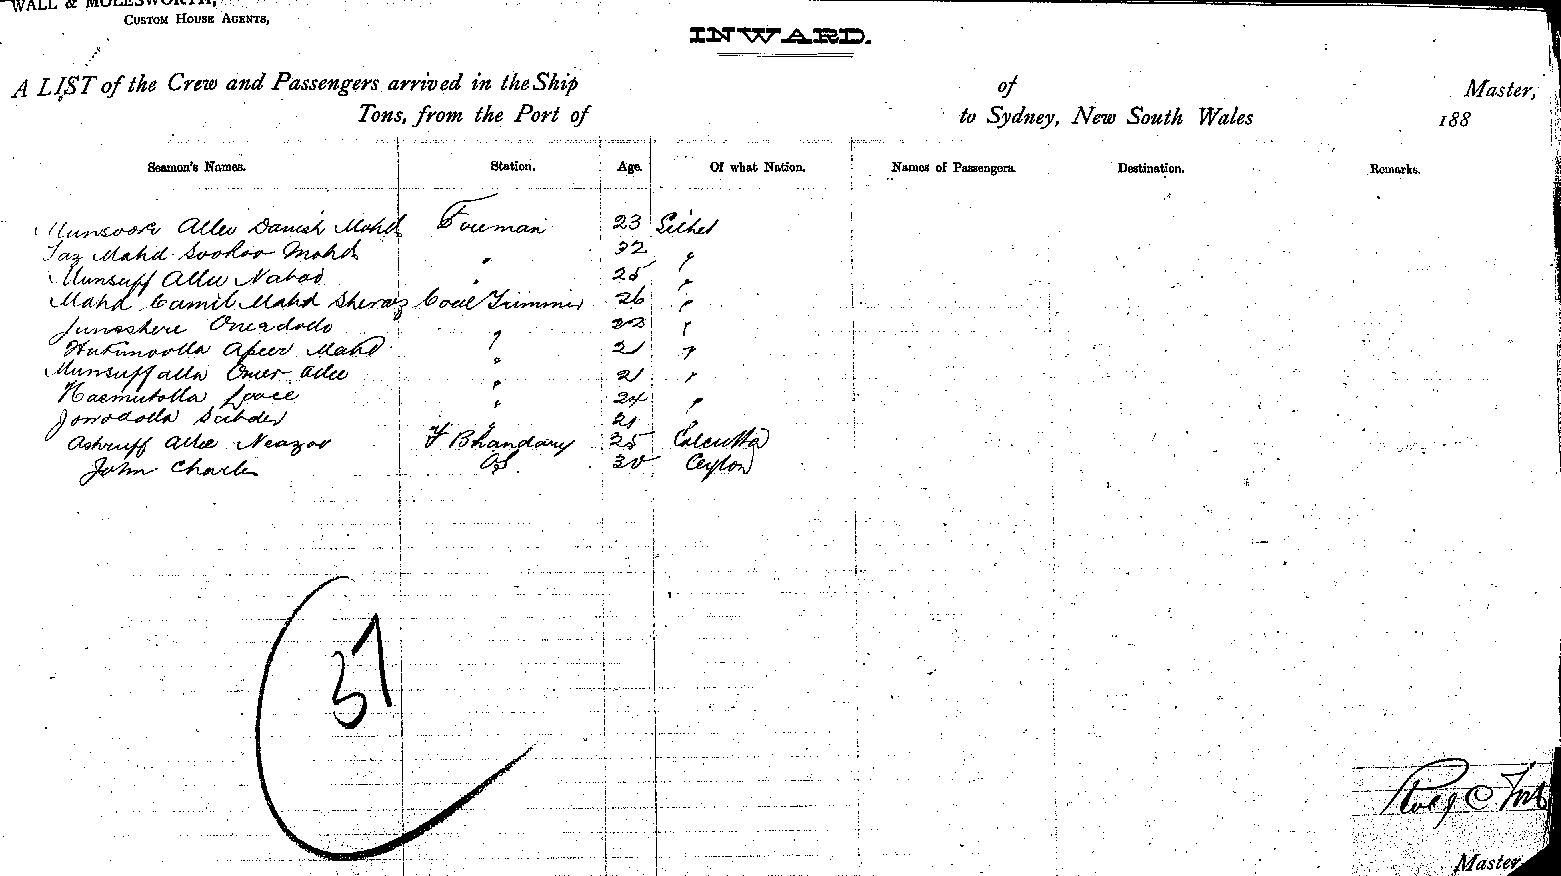 WALL & MOLESWORTH,
CUSTOM HOUSE AGENTS,
INWARD.
A LIST of the Crew and Passengers arrived in the Ship of Master,
Tons, from the Port of to Sydney, New South Wales 188
Seamen's Names. Station. Age. Of what Nation. Names of Passengers. Destination. Remarks.
Munsoor Allee Danish Mahd Foreman 23 Silhet
Taz Mahd Sookoo Mahd " 32 "
Munsuff Allee Nabod " 25 "
Mahd Camil Mahd Sheraz Coal Trimmer 26 "
" 23 "
Apeer Mahd " 21 "
Munsuff alla Omer Allee " 21 "
Hasmutolla " 24 "
Jonodolla " 21 "
Ashruff Allee Neazoo F Bhandary 25 Calcutta
John Charles 30 Ceylon
37
Master